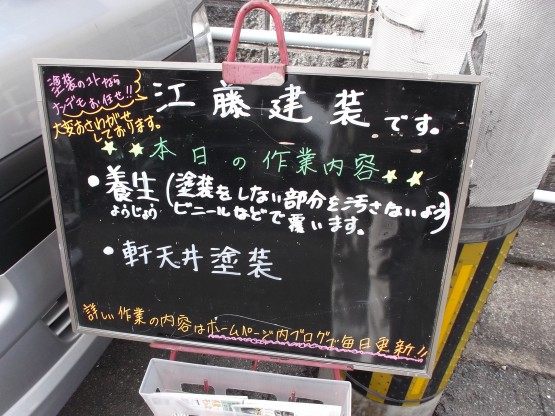 塗装のコトなら
ナンデモお任せ!!
大変おさわがせ
しております。
江藤建装です。
本日の作業内容
・養生(塗装をしない部分を汚さないよう
ようじょう ビニールなどで覆います。)
・軒天井塗装
詳しい作業の内容はホームページ内ブログで毎日更新!!